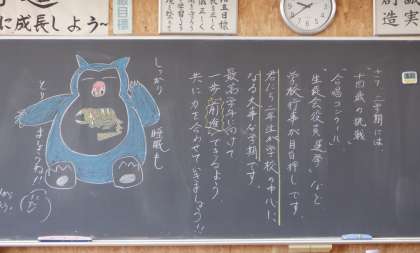 に成長しよう~
さて、二学期には
"十四歳の挑戦"
"合唱コンクール"
"生徒会役員選挙"など
学校行事が目白押しです。
君たち二年生が学校の中心に
なる大事な学期です。
最高学年に向けて
一歩前進できるよう
共に力を合わせていきましょう!!
しっかり
睡眠も
とり
ましょうね!!
誠実
創造